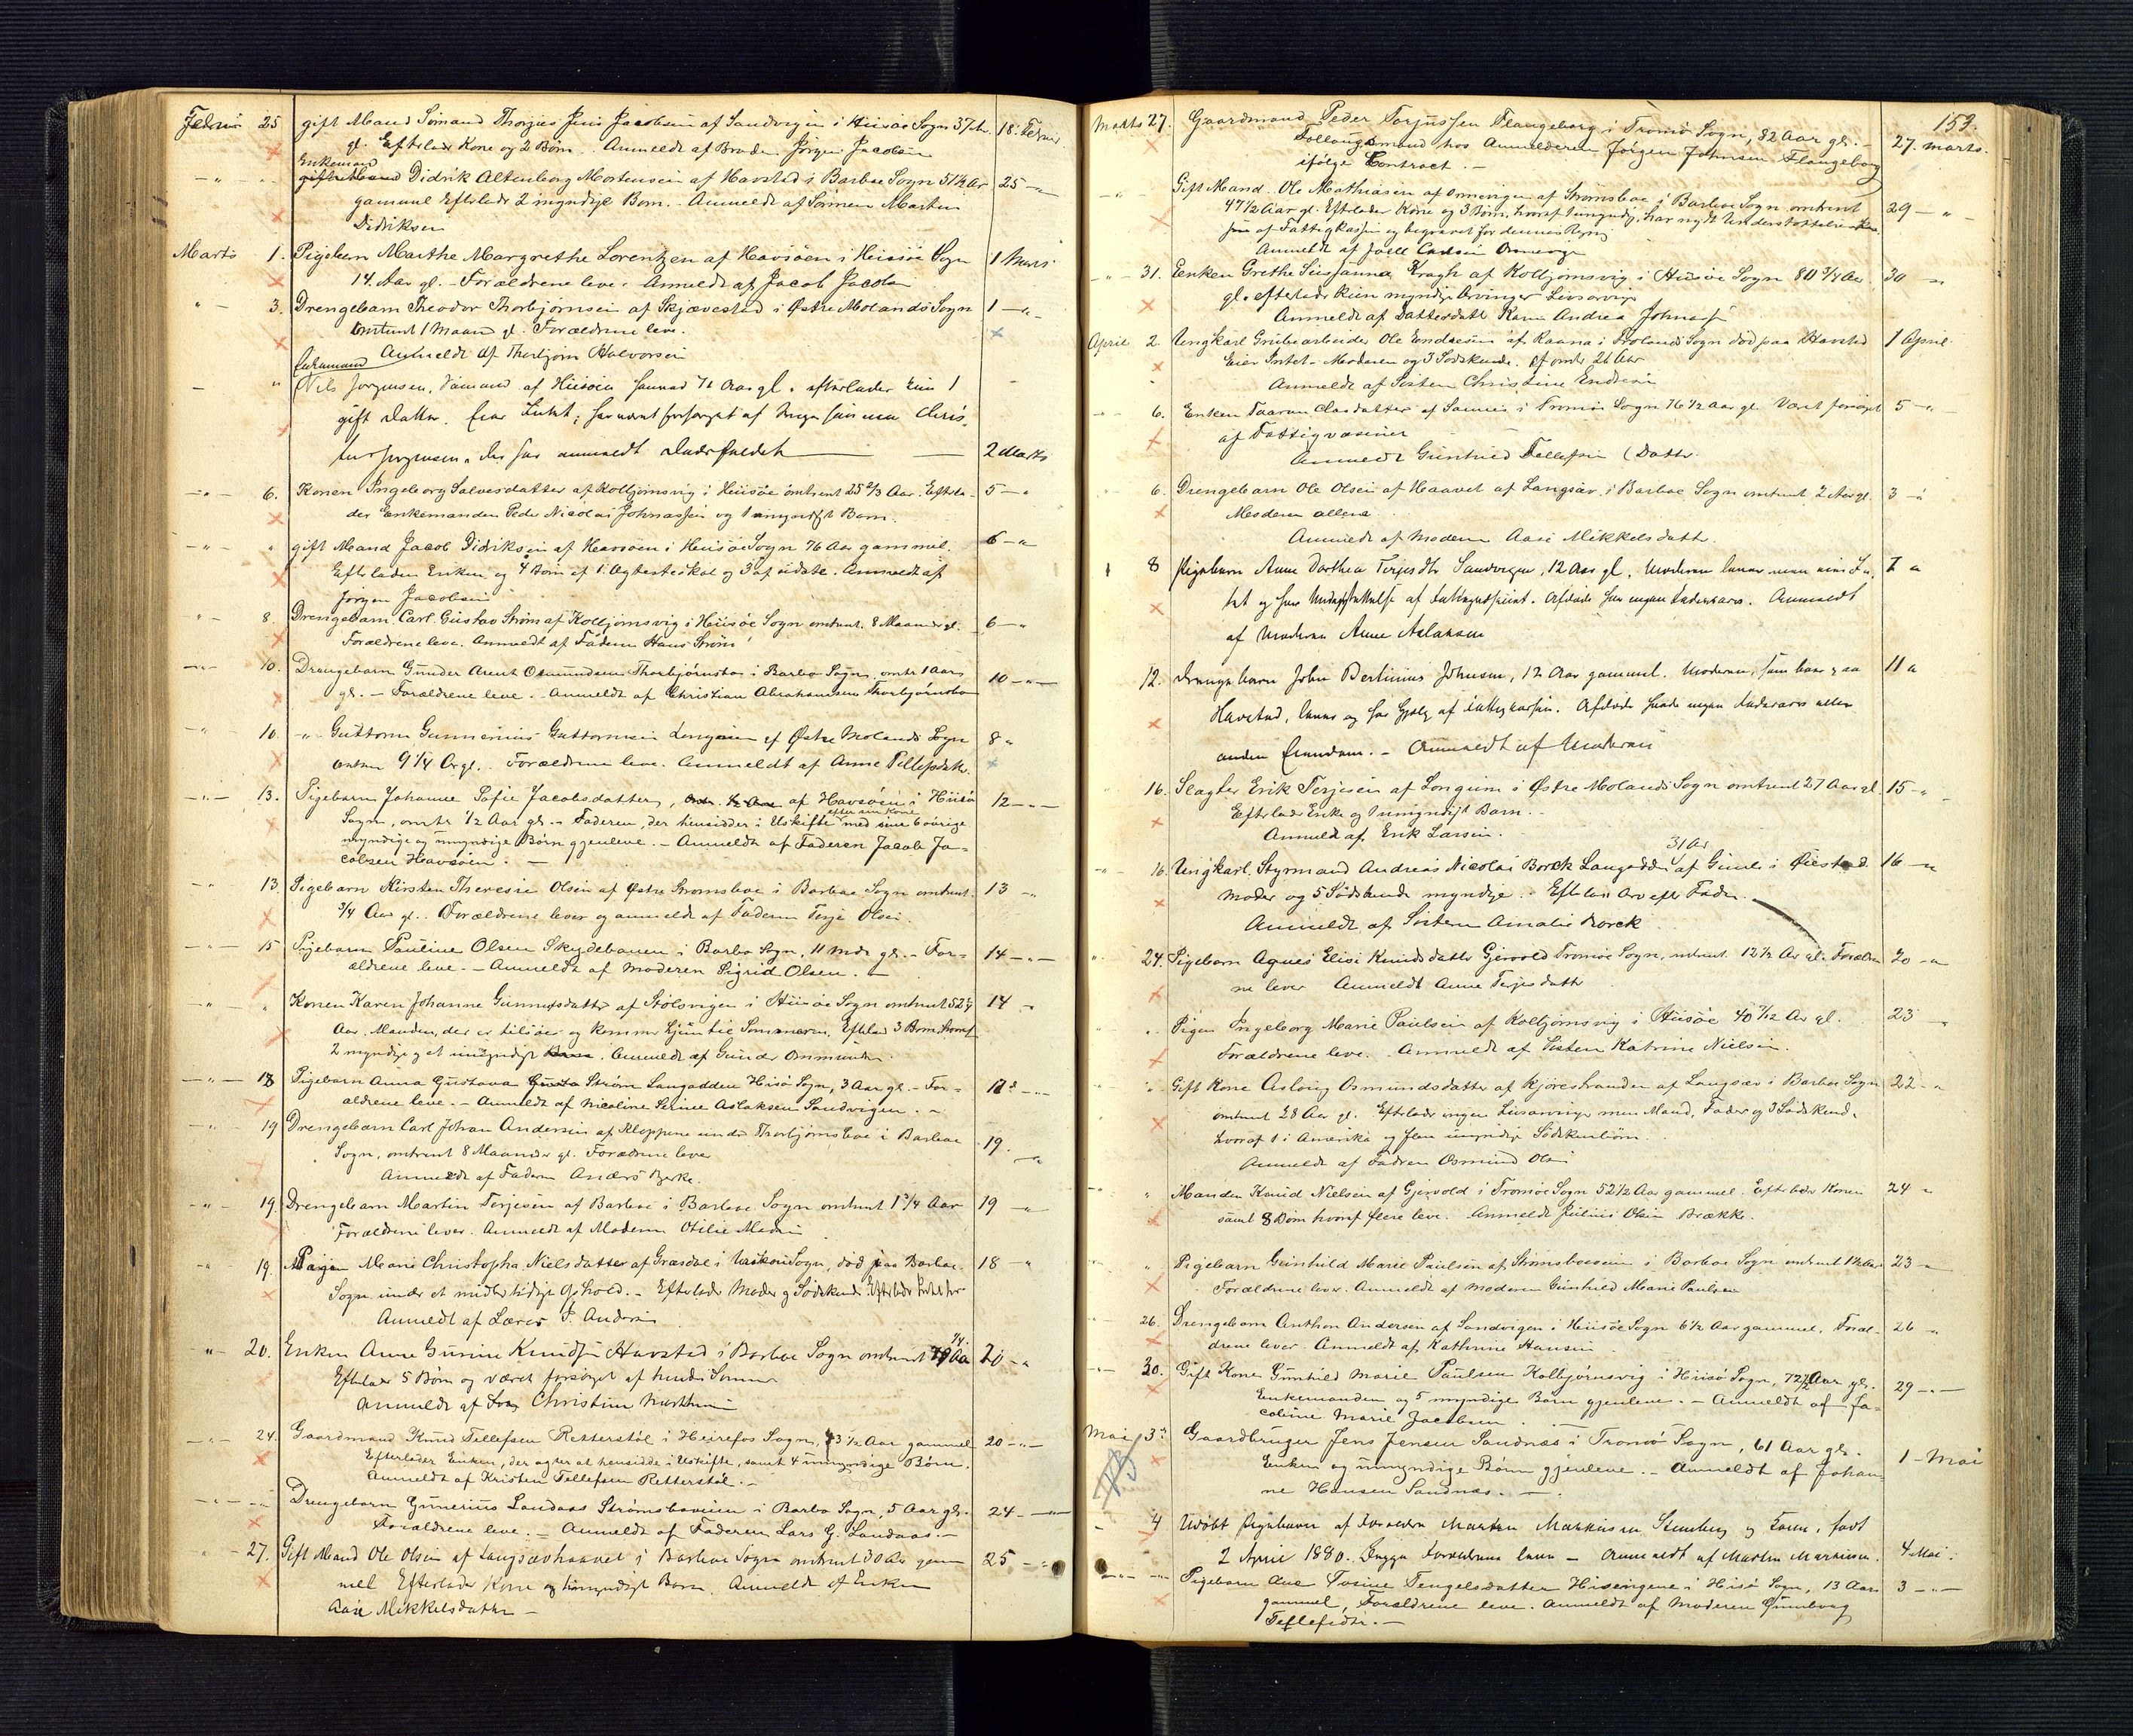 Februar 25 gift Mand Sømand Thorjus Jens Jacobsen af Sandvigen i Hiisøe Sogn 37 18. Februar
gl. Efterlader Kone og 2 Børn. Anmeldt af Broder Jørgen Jacobsen
Enkemand
Didrik Altenborg Mortensen af Havstad i Barboe Sogn 51½ Aar 25 - " -
gammel Efterlader 2 myndige Børn. Anmeldt af Sønnen Morten
Didriksen
Marts 1. Pigebarn Marthe Margrethe Lorentzen af Havsöen i Hiisöe Sogn 1 Marts
14. Aar gl. - Forældrene leve. Anmeldt af Jacob Jacobsen
" - 3. Drengebarn Theodor Thorbjørnsen af Skjævestad i Østre Molands Sogn 1 - " -
omtrent 1 Maaned gl. Forældrene leve.
Anmeldt af Thorbjørn Halvorsen
Enkemand
- " Nils Jørgensen, Sømand af Hiisøen 71 Aar gl. efterlader kun 1
gift Datter. Eier Intet; har været forsørget af Chris-
Jørgensen, der har anmeldt Dødsfaldet 2 Marts
- " - 6. Konen Ingeborg Salvesdatter af Kolbjørnsvig i Hiisøe omtrent 25 2/3 Aar. Efterla- 5 - "
der Enkemanden Peder Nicolai Johnassen og 1 umyndigt Barn.
- " - " gift Mand Jacob Didriksen af Havsöen i Hiisöe Sogn 76 Aar gammel. 6 - "
Efterlader Enken og 4 Børn af 1. Ægteskab og 3 af sidste. Anmeldt af
Jørgen Jacobsen
" - 8. Drengebarn Carl Gustav Strøm af Kolbjørnsvig i Hiisøe Sogn omtrent 8 Maaneder gl. 6 - "
Forældrene leve. Anmeldt af Faderen Hans Strøm
- " - 10. Drengebarn Gunder Arent Osmundsen Thorbjørnsbo i Barbo Sogn, omtr 1 Aar
gl. - Forældrene leve. Anmeldt af Christian Abrahamsen Thorbjørnsbo 10 - " -
" - 10. - " - Guttorm Gunnerius Guttormsen Longum af Østre Molands Sogn 8 "
omtrent 9 1/4 Aar gl. Forældrene leve. Anmeldt af Anne Pellefsdatter.
- " - 13. Pigebarn Johanne Sofie Jacobsdatter, af Havsöen i Hiisø 12 - " -
efter sin Kone
Sogn, omtr ½ Aar gl. - Faderen, der hensidder i Uskifte med sine 6 øvrige
myndige og umyndige Børn gjenleve. - Anmeldt af Faderen Jacob Ja-
cobsen Havsöen. -
" - 13. Pigebarn Kirsten Theresie Olsen af Østre Strømsboe i Barboe Sogn omtrent 13 - "
3/4 Aar gl. Forældrene lever og anmeldt af Faderen Terje Olsen.
- " - 15 Pigebarn Pauline Olsen Skydebanen i Barbo Sogn, 11 mdr gl. - For- 14 - " -
ældrene leve. - Anmeldt af Moderen Sigrid Olsen. -
" " Konen Karen Johanne Gunnufsdatter af Stølsvigen i Hiisøe Sogn omtrent 52½ 14 "
Aar. Manden, der er tilsøes og kommer hjem til Sommeren. Efterlad 3 Børn, hvoraf
2 myndige og et umyndigt. Anmeldt af Gunder Osmundsen.
- " - 18 Pigebarn Anna Gustava Strøm Langodden Hisø Sogn, 3 Aar gl. - For- 17 - " -
ældrene leve. - Anmeldt af Nicoline Serine Aslaksen Sandvigen. -
" - 19 Drengebarn Carl Johan Andersen af Kloppene under Thorbjørnsboe i Barboe 19. "
Sogn, omtrent 8 Maaneder gl. Forældrene lever
Anmeldt af Faderen Anders Berke.
- " - 19. Drengebarn Martin Terjesen af Barboe i Barboe Sogn omtrent 1 3/4 Aar 19 - "
Forældrene lever. Anmeldt af Moderen Otilie
- " 19. Pigen Marie Christopha Nielsdatter af Græsdal i Sogn, død paa Barboe 18 - "
Sogn under et midlertidigt Ophold. - Efterlader Moder og Sødskende.
Anmeldt af Lærer P. Andersen
" - 20. Enken Anne Gurine Knudsen Havstad i Barboe Sogn omtrent 74 Aar 20 - "
Efterlader 5 Børn og været forsørget af hendes Sønner
Anmeldt af Christine
- " - 24. Gaardmand Knud Tellefsen Retterstøl i Heirefos Sogn, 43½ Aar gammel 20 - " -
Efterlader Enken, der agter at hensidde i Uskifte, samt 4 umyndige Børn.
Anmeldt af Kristen Tellefsen Retterstøl. -
- " - " Drengebarn Gunerius Landaas Strømsboveien i Barbo Sogn, 5 Aar gl. 24 - " -
Forældrene leve. - Anmeldt af Faderen Lars G. Landaas. -
- 27. Gift Mand Ole Olsen af Langsævhaavet i Barboe Sogn omtrent 30 Aar gam 25 - " -
mel Efterlader Kone og umyndigt Barn. Anmeldt af Enken
Aase Mikkelsdatter -
153.
Marts 27. Gaardmand Peder Torjussen Flangeborg i Tromø Sogn, 82 Aar gl. - 27. Marts.
Follougsmand hos Anmelderen Jørgen Johnsen Flangeborg
ifølge Contract. -
- " Gift Mand Ole Mathiasen af af Strømsboe i Barboe Sogn omtrent 29 - " -
47½ Aar gl. Efterlader Kone og 3 Børn, hvoraf 1 umyndig, har nydt Understøttelse
af Fattigkassen og begravet for dennes Regning
Anmeldt af
" - 31. Enken Grethe Susanna Kragh af Kolbjørnsvig i Hiisøe Sogn 80 3/4 Aar 30 - "
gl. efterlader kun myndige Arvinger Livsarvinger
Anmeldt af Datterdatter Karen Andrea Johnassen
April 2 Ungkarl Grubearbeider Ole Endresen af Raana i Frolands Sogn død paa Havstad 1 April
Eier Intet - Moderen og 3 Sødskende. gl omtr. 26 Aar
Anmeldt af Søsteren Christine Endresen
- " 6. Enken Taaran Olasdatter af i Tromø Sogn 76½ Aar gl. Været forsørget 5 - "
af Fattigvæsenet
Anmeldt Gunhild Tellefsen (Datter
- 6. Drengebarn Ole Olsen af Haavet af Langsæv i Barboe Sogn omtrent 2 Aar gl. 3 - "
Moderen allene
Anmeldt af Moderen Aase Mikkelsdatter.
" 8 Pigebarn Anne Dorthea Terjesdtr Sandvigen, 12 Aar gl. Moderen lever men eier In- 7 "
tet og har Understøttelse af Fattigvæsenet. Afdøde har ingen Fadersarv. Anmeldt
af Moderen Anne Aslaksen
12. Drengebarn John Bertinius Johnsen, 12 Aar gammel. Moderen, som boer paa 11 "
Havstad, lever og har Hjælp af Fattigkassen. Afdøde havde ingen Fadersarv eller
anden Eiendom. - Anmeldt af Moderen
16. Slagter Erik Terjesen af Longum i Østre Molands Sogn omtrent 27 Aar gl. 15 - "
Efterlader Enke og 1 umyndigt Barn. -
Anmeldt af Erik Larsen.
31 Aar
- " 16. Ungkarl Styrmand Andreas Nicolai Borck Langodden af Gimle i Øiestad 16 - "
Moder og 5 Sødskende myndige. Efterlader Arv efter Fader.
Anmeldt af Søsteren Amalie Borck
" 24. Pigebarn Agnes Elise Knudsdatter Gjervold Tromøe Sogn, omtrent 12½ Aar gl. Forældre 20 - "
ne lever Anmeldt Anne Terjesdatter
- " Pigen Ingeborg Marie Paulsen af Kolbjørnsvig i Hiisöe 40 7/12 Aar gl. 23 -
Forældrene leve. Anmeldt af Søsteren Katrine Nielsen.
" Gift Kone Aslaug Osmundsdatter af Kjørestranden af Langsæv i Barboe Sogn 22 - "
omtrent 28 Aar gl. Efterlader ingen Livsarvinger men Mand, Fader og 3 Sødskende,
hvoraf 1 i Amerika og flere umyndige Sødskenbørn.
Anmeldt af Faderen Osmund Olsen
- " Manden Knud Nielsen af Gjervold i Tromøe Sogn 52½ Aar gammel. Efterlader Konen 24 - "
samt 8 Børn hvoraf flere leve. Anmeldt Julius Olsen Brække.
" Pigebarn Gunhild Marie Paulsen af Strømsboeveien i Barboe Sogn omtrent 1½ Aar 23 - "
Forældrene lever. Anmeldt af Moderen Gunhild Marie Paulsen
26. Drengebarn Anthon Andersen af Sandvigen i Hiisöe Sogn 6½ Aar gammel. Foræl- 26 - "
drene lever. Anmeldt af Kathrine Hansen
- " - 30. Gift Kone Gunhild Marie Paulsen Kolbjørnsvig i Hiisø Sogn, 72½ Aar gl. 29 - " -
Enkemanden og 5 myndige Børn gjenleve. - Anmeldt af Ja-
cobine Marie Jacobsen.
Mai 3. Gaardbruger Jens Jensen Sandnæs i Tromø Sogn, 61 Aar gl. 1 - Mai
Enken og umyndige Børn gjenleve. - Anmeldt af Johan-
ne Hansen Sandnæs. -
- 4 Udøbt Pigebarn af Forældre Morten Markussen Stenberg og Kone, født
2 April 1880. Begge Forældrene lever - Anmeldt af Morten Markussen. 4 Mai.
- " - Pigebarn Ane Tosine Tengelsdatter Hisengene i Hisø Sogn, 13 Aar 3 - " -
gammel, Forældrene leve. Anmeldt af Moderen Gunborg
Tellefsdtr. -